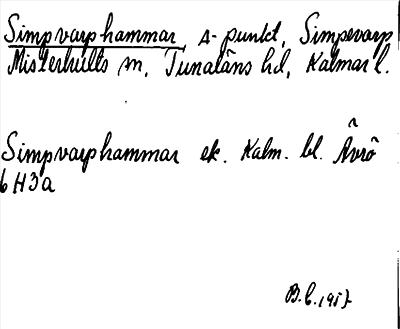 Simpvarphammar, s-punkt, Simpevarp
Misterhults sn, Tunaläns hd, Kalmar l.
Simpvarphammar ek. Kalm. bl. Ävrö
6H3a
B.C. 1957